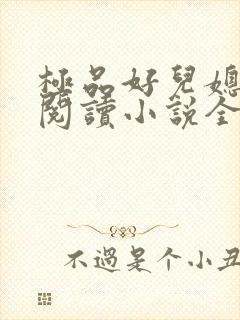 極品好兒媳
閱讀小說全
不過是个小丑